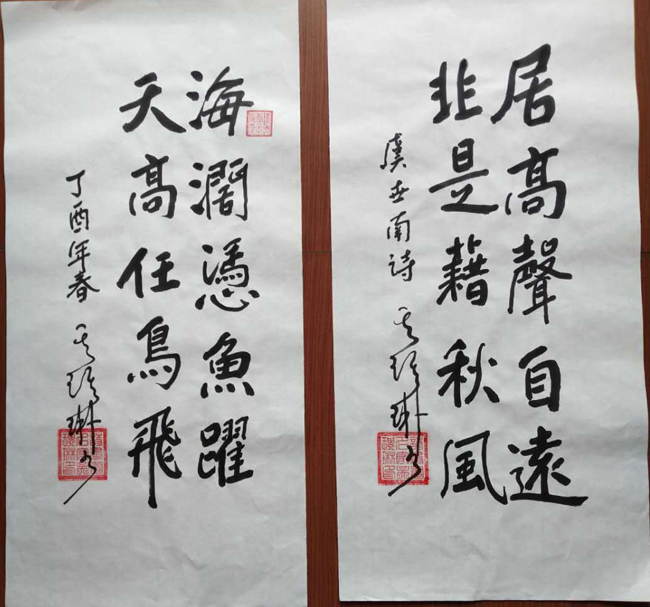 居高聲自遠
非是藉秋風
虞世南詩
海濶憑魚躍
天高任鳥飛
丁酉年春